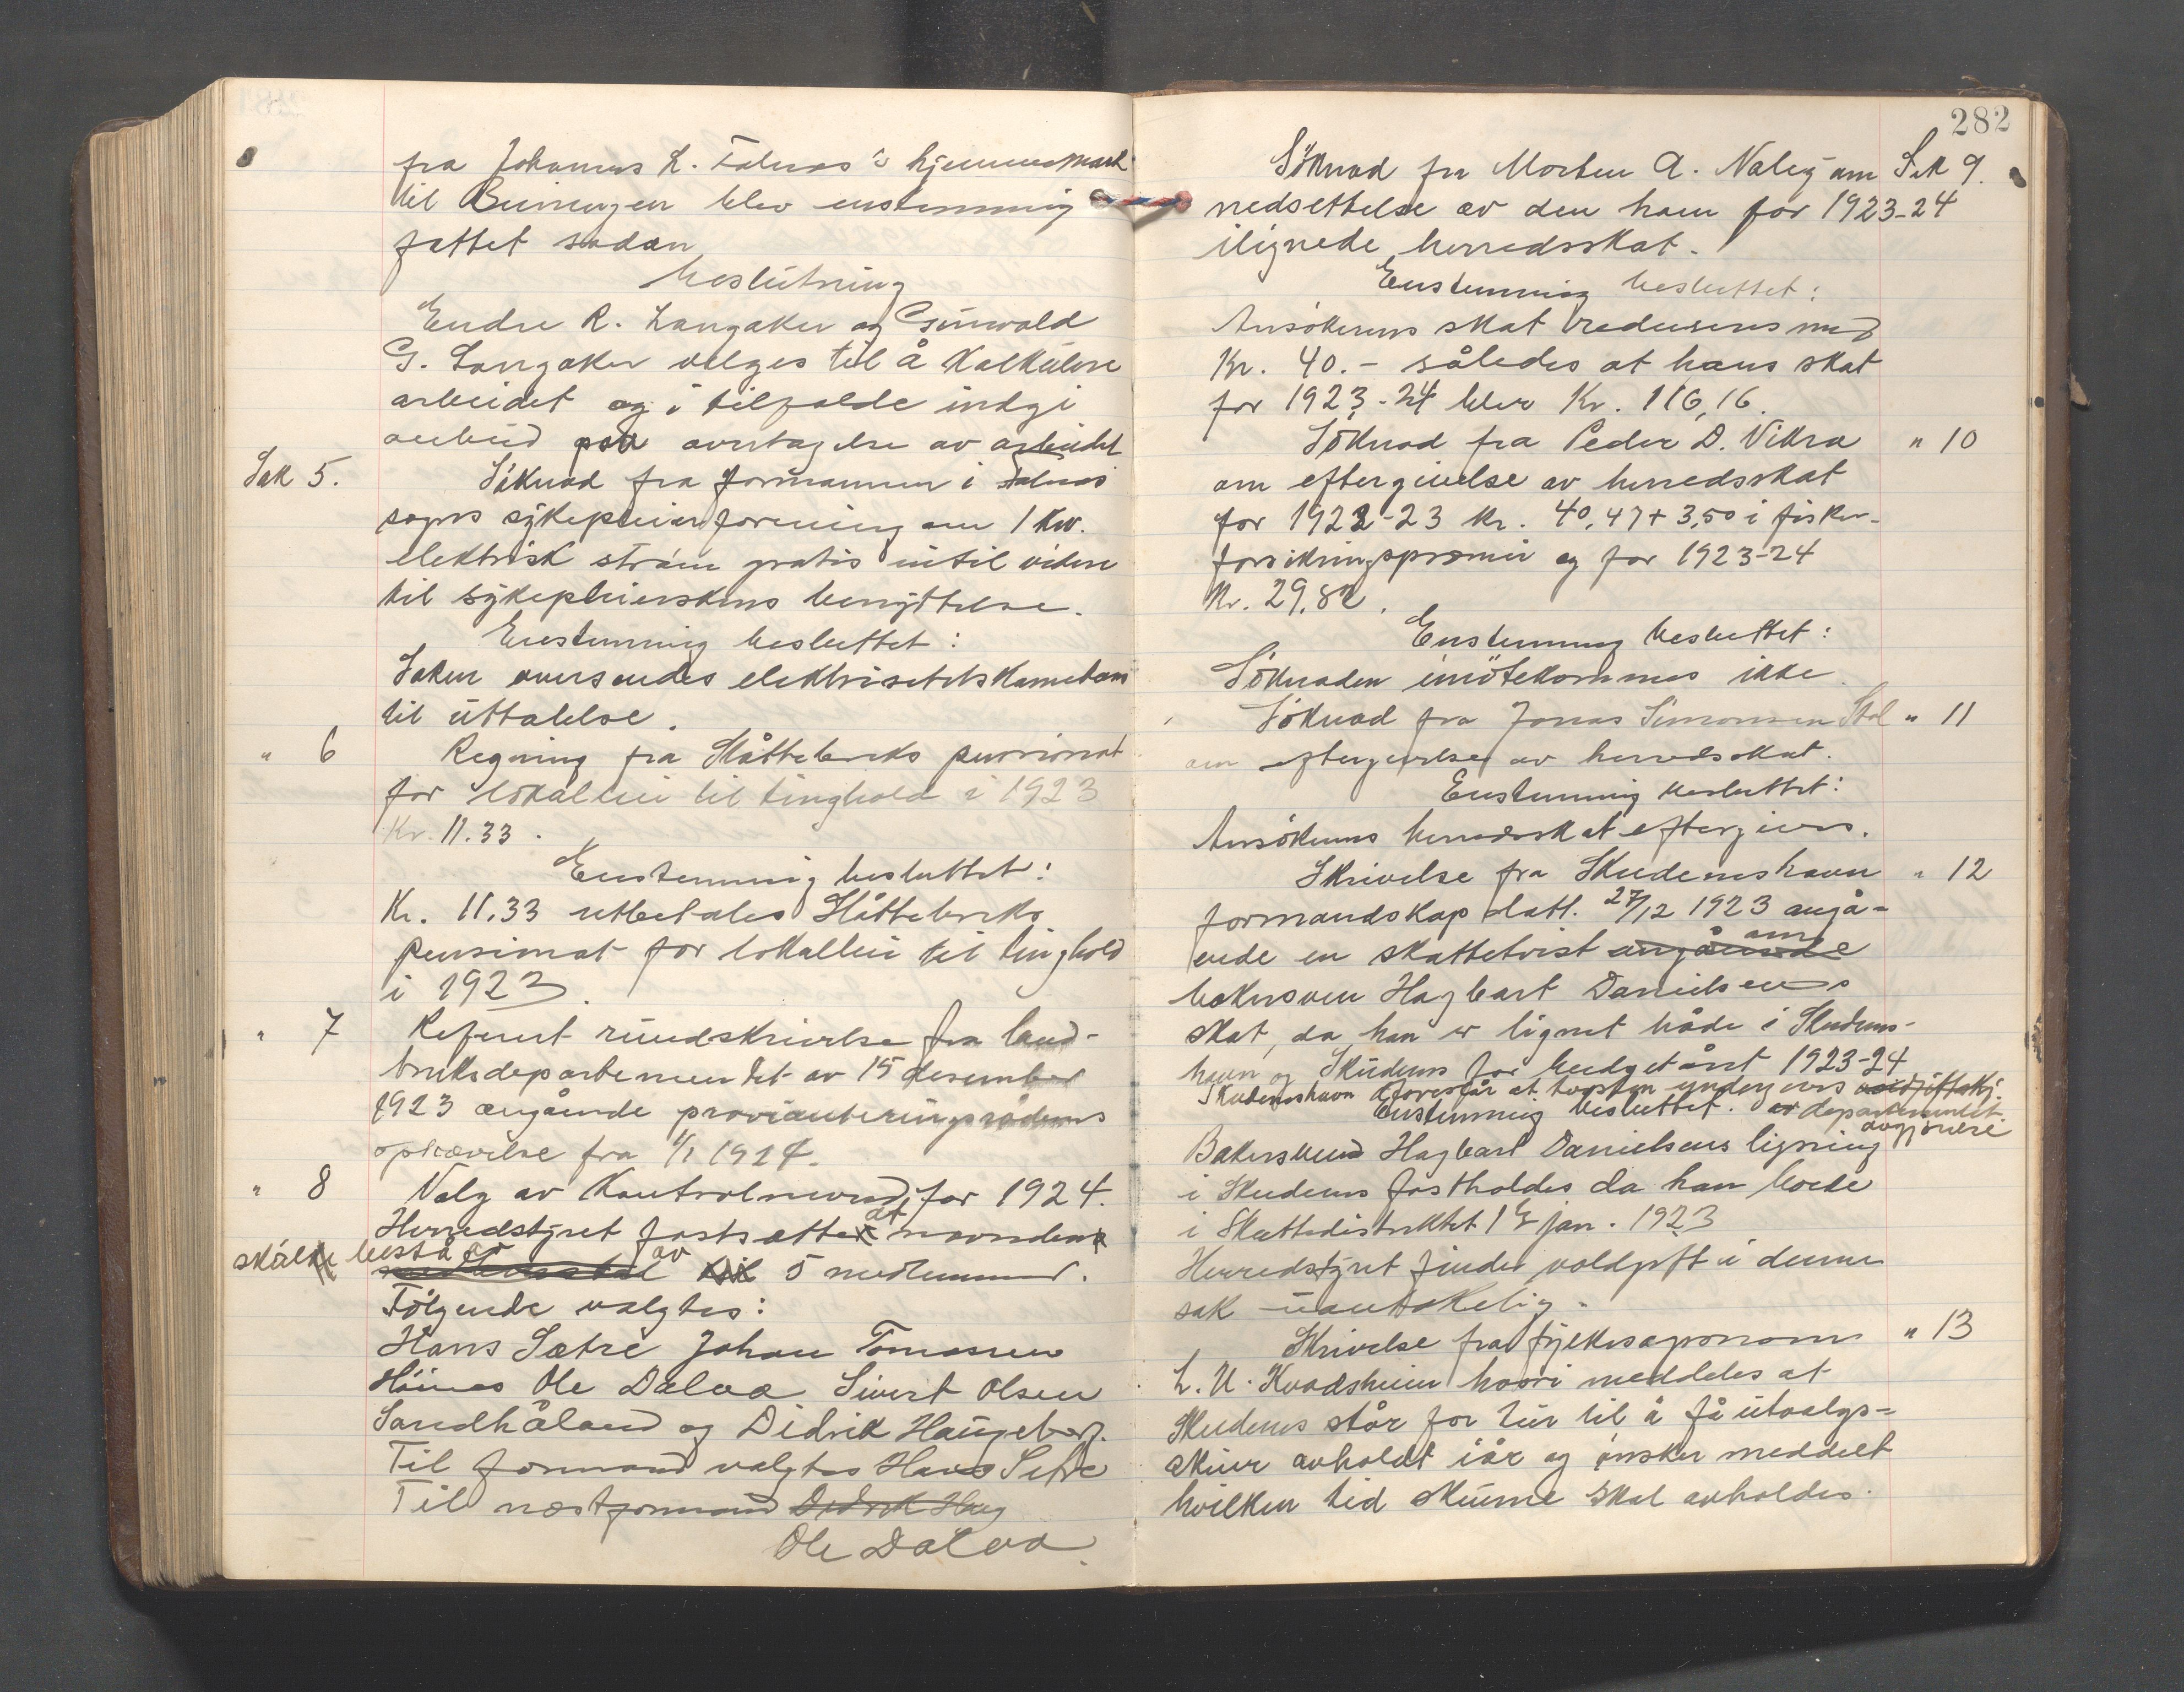 fra Johannes L. Falnes's hjemmemark
til Buningen blev enstemmig
fattet sådan
beslutning
Endre R. Langaker og Gunvald
G. Langaker velges til å kalkulere
arbeidet og i tilfælde indgi
anbud på overtagelse av arbeidet
Sak 5. Söknad fra formannen i Falnes
sogns sykepleierforening om 1 kw.
elektrisk ström gratis intil videre
til sykepleierskens benyttelse.
Enstemmig besluttet:
Saken oversendes elektrisitetskomiteen
til uttalelse.
" 6 Regning fra Slåttebreks pensionat
for lokalleie til tinghold i 1923
Kr. 11.33.
Enstemmig besluttet:
Kr. 11.33 utbetales Slåttebreks
pensionat for lokalleie til tinghold
i 1923.
" 7 Referert rundskrivelse fra land-
bruksdepartementet av 15 desember
1923 angående provianteringsrådenes
ophævelse fra 1/1 1924.
" 8 Valg av Kontrolnevnd for 1924.
Herredstyret fastsetter at nevnden
skal bestå av 5 medlemmer.
Fölgende valgtes:
Hans Sætre Johan Tomassen
Höines Ole Dalva Sivert Olsen
Sandhåland og Didrik Haugeberg.
Til formand valgtes Hans Setre
Til næstformand Didrik Haug
Ole Dalva.
282
Söknad fra Morten A. Nalig om Sak 9.
nedsettelse av den ham for 1923-24
ilignede herredsskat.
Enstemmig besluttet:
Ansökerens skat reduseres med
Kr. 40.- således at hans skat
for 1923-24 blir Kr. 116,16.
Söknad fra Peder D. Vikra " 10
om eftergivelse av herredsskat
for 1922-23 kr. 40,47 + 3,50 i fisker-
forsikringspremie og for 1923-24
Kr. 29,82.
Enstemmig besluttet:
Söknaden imötekommes ikke.
Söknad fra Jonas Simonsen Stol " 11
om eftergivelse av herredsskat.
Enstemmig besluttet:
Ansökerens herredsskat eftergives.
Skrivelse fra Skudeneshavn " 12
formandskap datt. 27/12 1923 angå-
ende en skattetvist angående om
bakersven Hagbart Danielsens
skat, da han er lignet både i Skudenes-
havn og Skudenes for budgetåret 1923-24
Skudeneshavn foreslår at tvisten undergives voldgiftskj.
Enstemmig besluttet. er departementet
avgjörelse
Bakersvend Hagbart Danielsens ligning
i Skudenes fastholdes da han boede
i Skattedistriktet 1ste jan. 1923
Herredstyret finder voldgift i denne
sak uantakelig.
Skrivelse fra fylkesagronom " 13
L. U. Kvadsheim hvori meddeles at
Skudenes står for tur til å få utvalgs-
skuer avholdt iår og önsker meddelt
hvilken tid skuene skal avholdes.